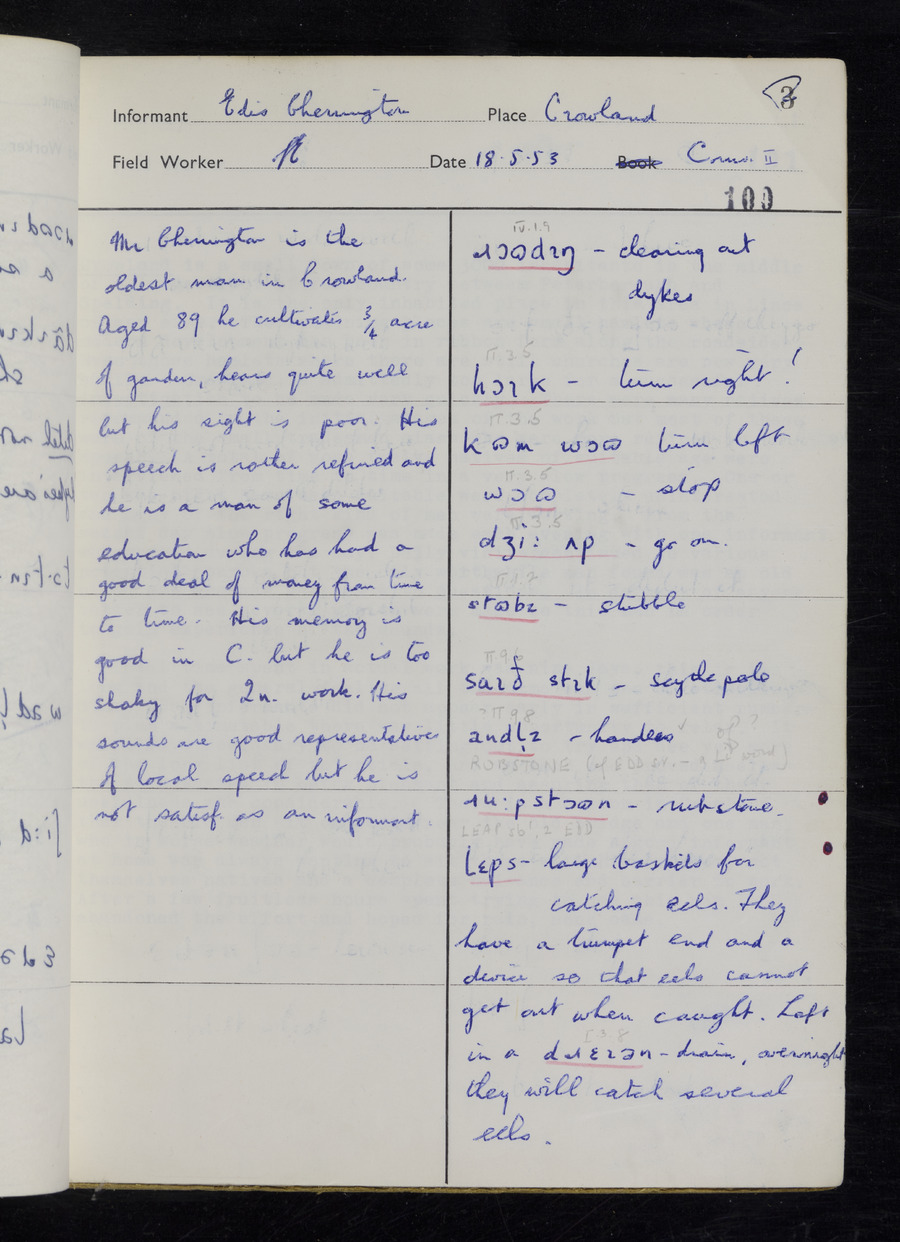 3
Informant Edis Cherrington Place Crowland
Field Worker Date 18.5.53 Book Conv. II
100
Mr Cherrington is the
oldest man in Crowland.
Aged 89 he cultivates 3/4 acre
of garden, hears quite well
but his sight is poor. His
speech is rather refined and
he is a man of some
education who has had a
good deal of money from time
to time. His memory is
good in C. but he is too
shaky for Qn. work. His
sounds are good representatives
of local speech but he is
not satisf. as an informant.
IV.1.9
ɹɔʊdɪŋ – clearing out
dykes
II.3.5
hɔɪk – turn right!
II.3.5
kʊm wɔʊ turn left
II.3.5
wɔʊ – stop
II.3.5
dʒi: ʌp – go on.
II.1.2
stʊbz – stubble
II.9.6
saɪð stɪk – scythe pole
?II.9.8
andl̩z – handles
ROBSTONE
ɹu:pstɔʊn – rubstone.
LEAP sb', 2 EDD
lɛps – large baskets for
catching eels. They
have a trumpet end and a
device so that eels cannot
get out when caught. Left
I.3.8
in a dɹɛɪən – drain, overnight
they will catch several
eels.